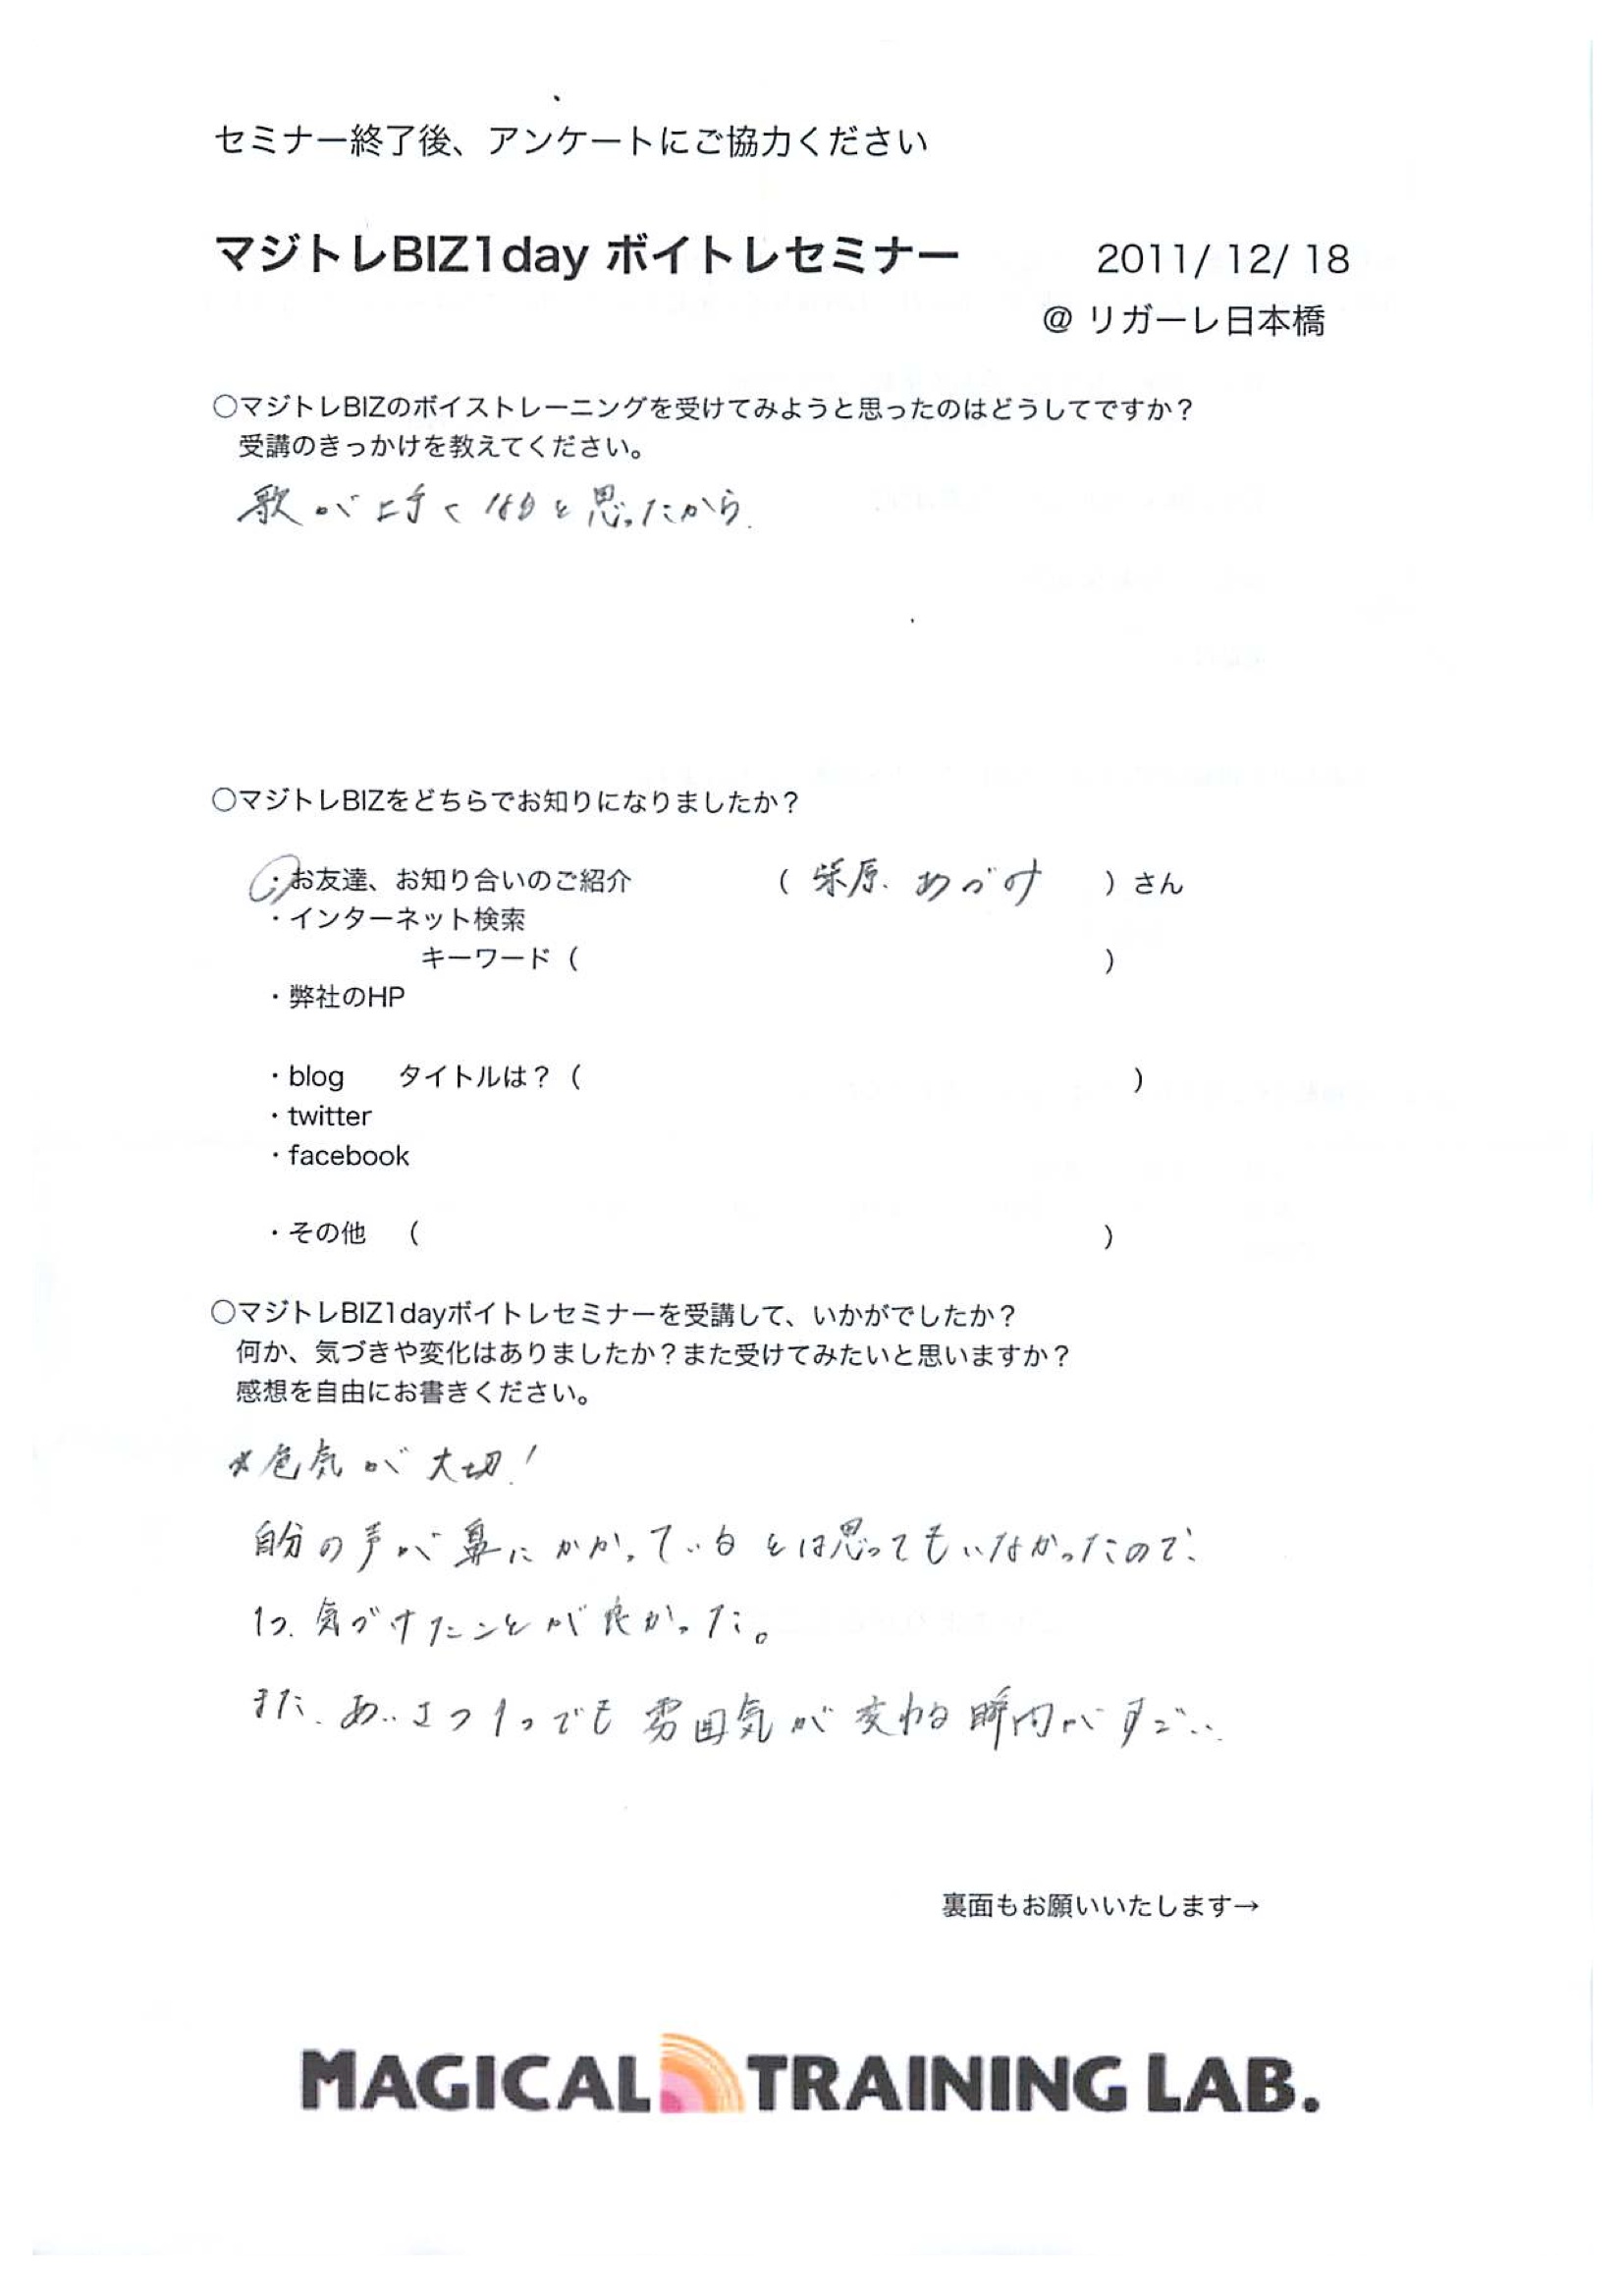 セミナー終了後、アンケートにご協力ください
マジトレBIZ1day ボイトレセミナー 2011/ 12/ 18
@ リガーレ日本橋
○マジトレBIZのボイストレーニングを受けてみようと思ったのはどうしてですか？
受講のきっかけを教えてください。
歌が上手くなると思ったから.
○マジトレBIZをどちらでお知りになりましたか？
・お友達、お知り合いのご紹介 ( 柴原. あづみ ) さん
・インターネット検索
キーワード ( )
・弊社のHP
・blog タイトルは？ ( )
・twitter
・facebook
・その他 ( )
○マジトレBIZ1dayボイトレセミナーを受講して、いかがでしたか？
何か、気づきや変化はありましたか？また受けてみたいと思いますか？
感想を自由にお書きください。
*色気が大切!
自分の声が鼻にかかっているとは思ってもいなかったので、
1つ.気づけたことが良かった。
また、あいさつ1つでも雰囲気が変わる瞬間がすごい.
裏面もお願いいたします→
MAGICAL TRAINING LAB.